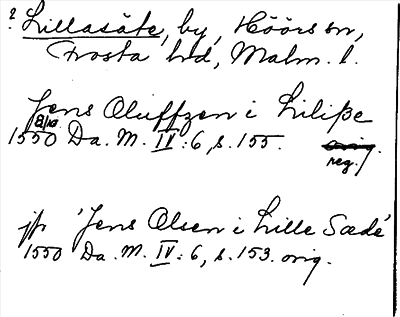 ? Lillasäte, by, Höörs sn,
Frosta hd, Malm. l.
Jens Oluffzen i Lilißze
8/10
1550 Da. M. IV: 6, s. 155. orig.
reg.
jfr 'Jens Olsen i Lille Sæde'
1550 Da. M. IV: 6, s. 153. orig.